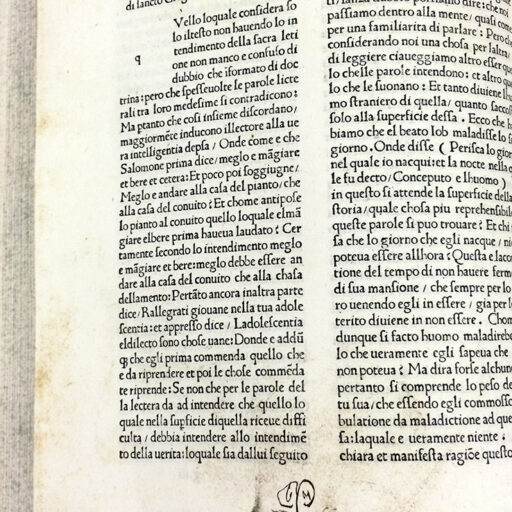 di sancto
Vello loquale considera so
lo iltesto non hauendo lo in
tendimento della sacra leti
q
one non manco e confuso di
dubbio che iformato di doc
trina: pero che spesseuolte le parole licte
rali tra loro medesime si contradicono:
Ma ptanto che cosi insieme discordano/
maggiorméte inducono illectore alla ue
ra intelligentia depsa/ Onde come e che
Salomone prima dice/ meglo e mãgiare
et bere et cetera: Et poco poi soggiugne/
Meglo e andare alla casa del pianto/ che
alla casa del conuito: Et chome antipose
lo pianto al conuito quello loquale elmã
giare elbere prima haueua laudato? Cer
tamente secondo lo intendimento meglo
e mãgiare et bere: meglo debbe essere an
dare alla casa del conuito che alla chasa
dellamento: Pertãto ancora inaltra parte
dice/ Rallegrati giouane nella tua adole
scentia: et appresso dice/ Ladolescentia
eldilecto sono chose uane: Donde e addũ
q; che egli prima commenda quello che
e da riprendere et poi le chose commẽda
te riprende: Se non che per le parole del
la lectera da ad intendere che quello lo
quale nella supficie diquella riceue diffi
culta/ debbia intendere allo intendimẽ
to della uerita: loquale sia dallui seguito
passiamo dentro alla mente/ quasi come
per una familiarita di parlare: Pero che
considerando noi una chosa per laltra/
di leggere ciaueggiamo altro esser
lo chelle parole intendono: et altro
lo che le suonano: Et tanto diuiene
mo straniero di quella/ quanto
solo alla superficie dessa. Ecco che
biamo che el beato Iob maladisse lo
giorno. Onde disse ( Perisca lo
nel quale io nacqui: et la nocte nella
le fu decto/ Conceputo e lhuomo )
in questo si attende la superficie della
storia/ quale chosa piu reprehensibile
queste parole si puo trouare? Et chi
sa che lo giorno che egli nacque/
poteua essere allhora: Questa e
tione del tempo di non hauere
di sua mansione/ che sempre per lo
ro uenendo egli in essere/ gia per
terito diuiene in non essere.
dunque si facto huomo maladirebbe
lo che ueramente egli sapeua che
non poteua? Ma dira forse
pertanto si comprende lo peso
tu sua/ che essendo egli
bulatione da maladictione ad
sa: laquale e ueramente niente:
chiara et manifesta ragiõe questo